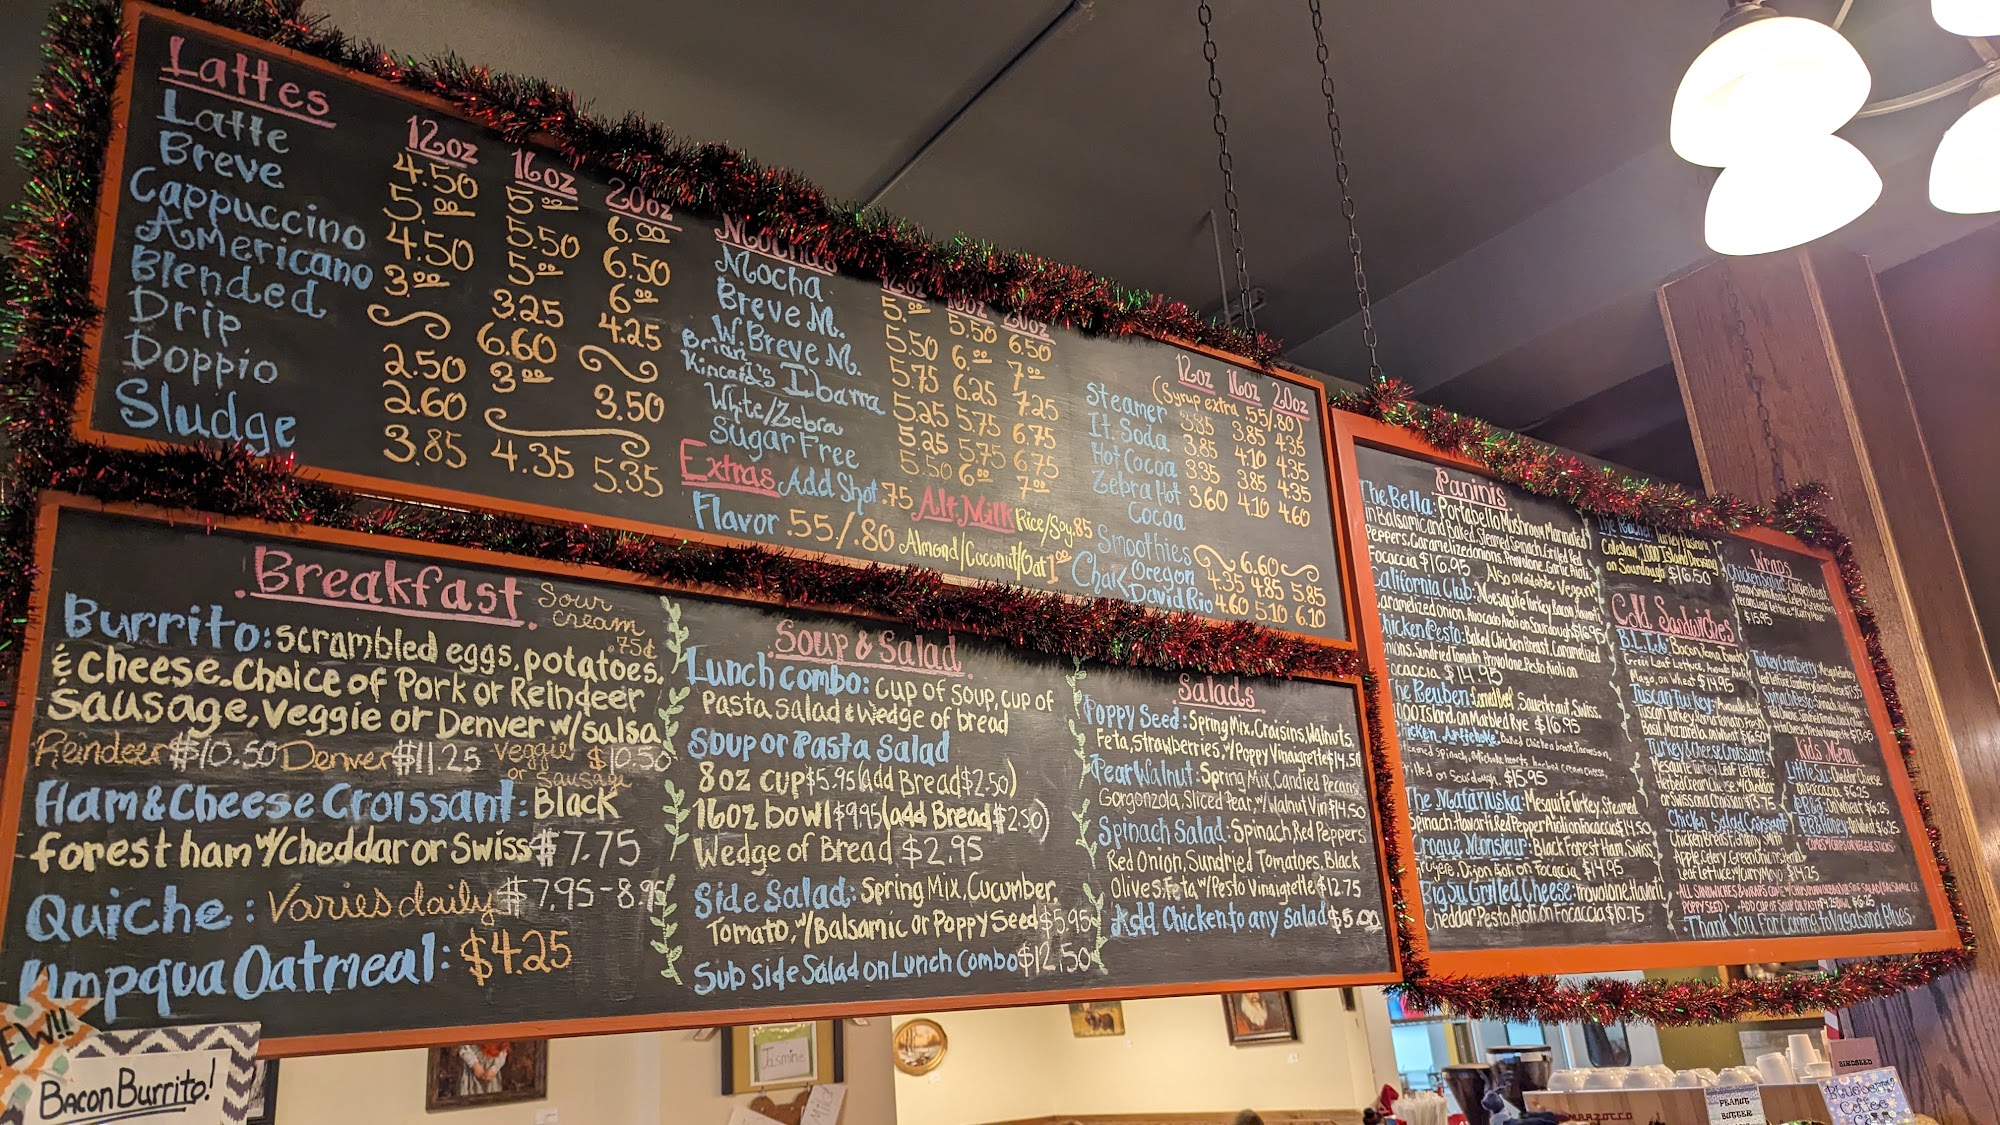 Lattes
12oz 16oz 20oz
Latte 4.50 5.00 6.00
Breve 5.00 5.50 6.50
Cappuccino 4.50 5.00 6.00
Americano 3.00 3.25 4.25
Blended 6.60
Drip 2.50 3.00 3.50
Doppio 2.60
Sludge 3.85 4.35 5.35
Mochas
12oz 16oz 20oz
Mocha 5.00 5.50 6.50
Breve M. 5.50 6.00 7.00
W. Breve M. 5.75 6.25 7.25
Brian
Kincaid's Ibarra 5.25 5.75 6.75
White/Zebra 5.25 5.75 6.75
Sugar Free 5.50 6.00 7.00
Extras Add Shot .75 Alt. Milk Rice/Soy .85
Flavor .55/.80 Almond/Coconut/Oat 1.00
12oz 16oz 20oz
(Syrup extra .55/.80)
Steamer 3.85 3.85 4.35
It. Soda 3.85 4.10 4.35
Hot Cocoa 3.35 3.85 4.35
Zebra Hot 3.60 4.10 4.60
Cocoa
Smoothies 6.60
Oregon 4.35 4.85 5.85
Chai David Rio 4.60 5.10 6.10
Breakfast
Sour
Cream
.75¢
Burrito: scrambled eggs, potatoes,
& cheese. Choice of Pork or Reindeer
Sausage, Veggie or Denver w/salsa
Reindeer $10.50 Denver $11.25 Veggie or Sausage $10.50
Ham & Cheese Croissant: Black
forest ham w/cheddar or Swiss $7.75
Quiche: Varies daily $7.95-8.95
Umpqua Oatmeal: $4.25
Soup & Salad
Lunch combo: cup of soup, cup of
Pasta salad & Wedge of bread
Soup or Pasta Salad
8oz cup $5.95 (add Bread $2.50)
16oz bowl $9.95 (add Bread $2.50)
Wedge of Bread $2.95
Side Salad: Spring Mix, Cucumber,
Tomato, w/Balsamic or Poppy Seed $5.95
Sub side Salad on Lunch Combo $12.50
Salads
Poppy Seed: Spring Mix, Craisins, Walnuts,
Feta, Strawberries, w/Poppy Vinaigrette $14.50
Pear Walnut: Spring Mix, Candied Pecans,
Gorgonzola, Sliced Pear w/Walnut Vin $14.50
Spinach Salad: Spinach, Red Peppers
Red Onion, Sundried Tomatoes, Black
Olives, Feta, w/Pesto Vinaigrette $12.75
Add Chicken to any Salad $5.00
Paninis
The Bella: Portabello Mushroom Marinated
in Balsamic and Baked, Steamed Spinach, Grilled Red
Peppers, Caramelized onions, Provolone, Garlic Aioli
Focaccia $16.95 Also available Vegan!
California Club: Mesquite Turkey, Bacon, Havarti,
Caramelized onion, Avocado Aioli on Sourdough $16.95
Chicken Pesto: Baked Chicken Breast, Caramelized
onions, Sundried Tomato, Provolone, Pesto Aioli on
Focaccia $14.95
The Reuben: Corned Beef, Sauerkraut, Swiss,
1000 Island, on Marbled Rye $16.95
Chicken Artichoke: Baked Chicken breast, Parmesan,
Steamed Spinach, Artichoke hearts, herbed cream Cheese,
Grilled on Sourdough. $15.95
The Matanuska: Mesquite Turkey, Steamed
Spinach, Havarti, Red Pepper Aioli on Focaccia $14.50
Croque Monsieur: Black Forest Ham, Swiss,
Gruyere, Dijon Aioli on Focaccia $14.95
Big Su Grilled Cheese: Provolone, Havarti,
Cheddar, Pesto Aioli, on Focaccia $10.75
The Rachel: Turkey Pastrami,
Coleslaw, 1000 Island Dressing
on Sourdough $16.50
Cold Sandwiches
B.L.T.A: Bacon, Roma Tomato
Green Leaf Lettuce, Avocado
Mayo, on Wheat $14.95
Tuscan Turkey: Avocado Aioli
Tuscan Turkey, Roma Tomato, Fresh
Basil, Mozzarella on Wheat $16.50
Turkey & Cheese Croissant:
Mesquite Turkey, Leaf Lettuce,
Herbed Cream Cheese w/Cheddar
or Swiss on a Croissant $13.75
Chicken Salad Croissant
Chicken Breast, Granny Smith
Apple, Celery, Green Onions,
Leaf Lettuce w/Curry Mayo $14.25
Wraps
Chicken Salad:
$15.95
Turkey Cranberry: Mesquite Turkey
Spinach Pesto:
Kids Menu
Little Su: Cheddar Cheese
on Foccacia. $6.25
PB&J: On Wheat $6.25
PB&Honey: On Wheat $6.25
-COMES W/CHIPS OR VEGGIE STICKS-
Thank You, For Coming to Vagabond Blues
NEW!!
Bacon Burrito!
Jasmine
Mild
BIRDSEED
PEANUT
BUTTER
Blueberry
Coffee
Cake